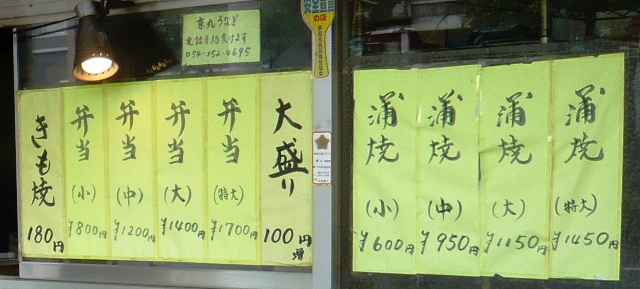 京丸うなぎ
電話予約受けます
054-252-4695
の店
きも焼
180円
弁当
(小)
¥800円
弁当
(中)
¥1200円
弁当
(大)
¥1400円
弁当
(特大)
¥1700円
大盛り
100円
増
蒲焼
(小)
¥600円
蒲焼
(中)
¥950円
蒲焼
(大)
¥1150円
蒲焼
(特大)
¥1450円